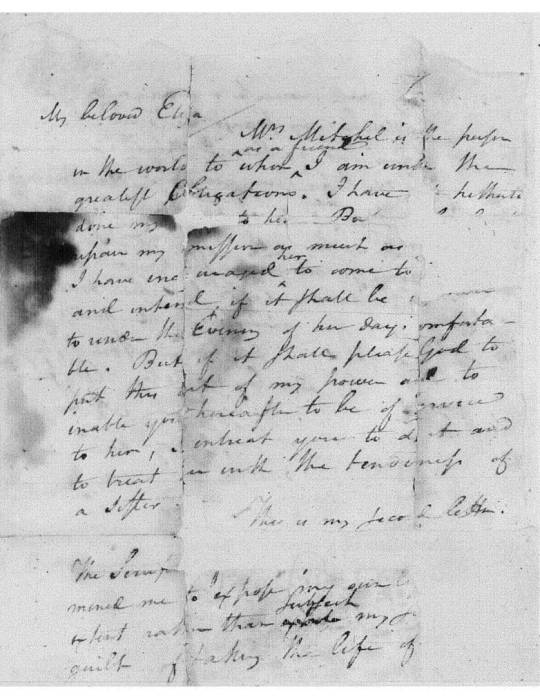 My beloved Eliza
Mrs Mitchel is the person
in the world to whom ^as a friend I am under the
greatest Obligations. I have hitherto
done my to her. Bu
upon my mission as much as
I have encouraged ^her to come to
and intend, if it shall be
to render the Evening of her days comforta-
ble. But if it shall please God to
put this out of my power and to
inable you hereafter to be of service
to her, I entreat you to do it and
to treat her with the tenderness of
a Sister.
This is my second letter.
The Scrup
mined me to expose my own l
extent rather than subject my
guilt of taking the life of